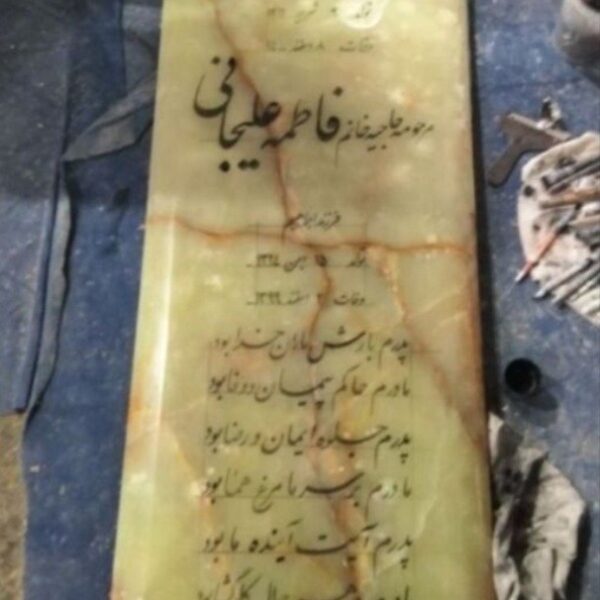 وفات ۸ اسفند
مرحومه حاجیه خانم فاطمه علیجانی
فرزند ابراهیم
تولد ۱۵ بهمن ۱۳۱۴
وفات ۲ اسفند ۱۳۹۹
پدرم بارش باران خدا بود
مادرم حاکم پیمان و وفا بود
پدرم جلوه ایمان و رضا بود
مادرم بر سر ما مرغ هما بود
پدرم آیت آینده ما بود